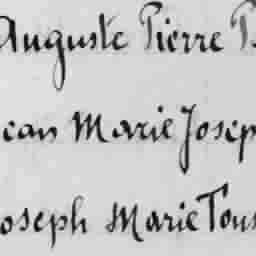 Auguste Pierre P
ean Marie Josep
oseph Marie Tous